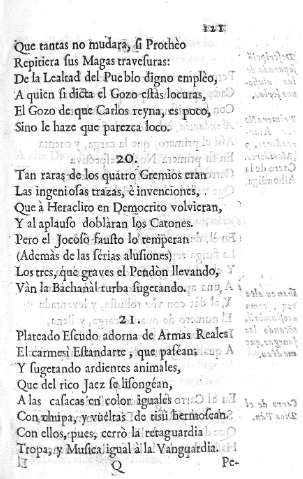 121
Que tantas no mudara, si Prothèo
Repitiera sus Magas travesuras:
De la Lealtad del Pueblo digno emplèo,
A quien si dicta el Gozo estàs locuras,
El Gozo de que Carlos reyna, es poco,
Sino le haze que parezca loco.
20.
Tan raras de los quatro Gremios eran
Las ingeniosas trazas, è invenciones,
Que à Heraclito en Democrito volvieran,
Y al aplauso doblàran los Catones.
Pero el Jocoso fausto lo temperan
(Ademàs de las sérias alusiones)
Los tres, que graves el Pendòn llevando,
Vàn la Bachanal turba sugetando.
21.
Plateado Escudo adorna de Armas Reales
El carmesì Estandarte, que pasèan;
Y sugetando ardientes animales,
Que del rico Jaez se lisongéan,
A las casacas en color iguales
Con chupa, y vueltas de tisù hermosèan.
Con ellos, pues, cerrò la retaguardia
Tropa, y Musica igual à la Vanguardia.
Q
Pe-